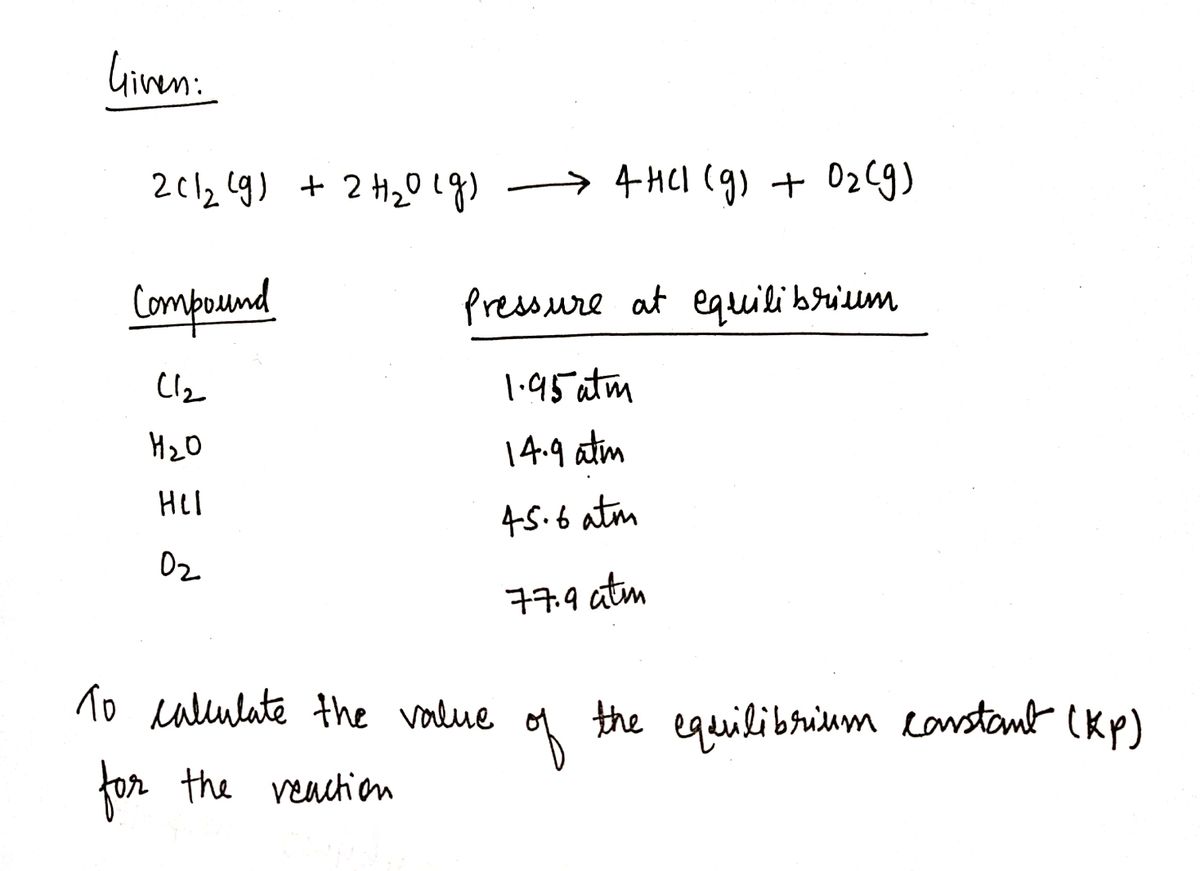 Given:
2Cl₂ (g) + 2 H₂O (g) ⟶ 4 HCl (g) + O₂(g)
Compound Pressure at equilibrium
Cl₂ 1.95 atm
H₂O 14.9 atm
HCl 45.6 atm
O₂ 77.9 atm
To calculate the value of the equilibrium constant (Kp)
for the reaction